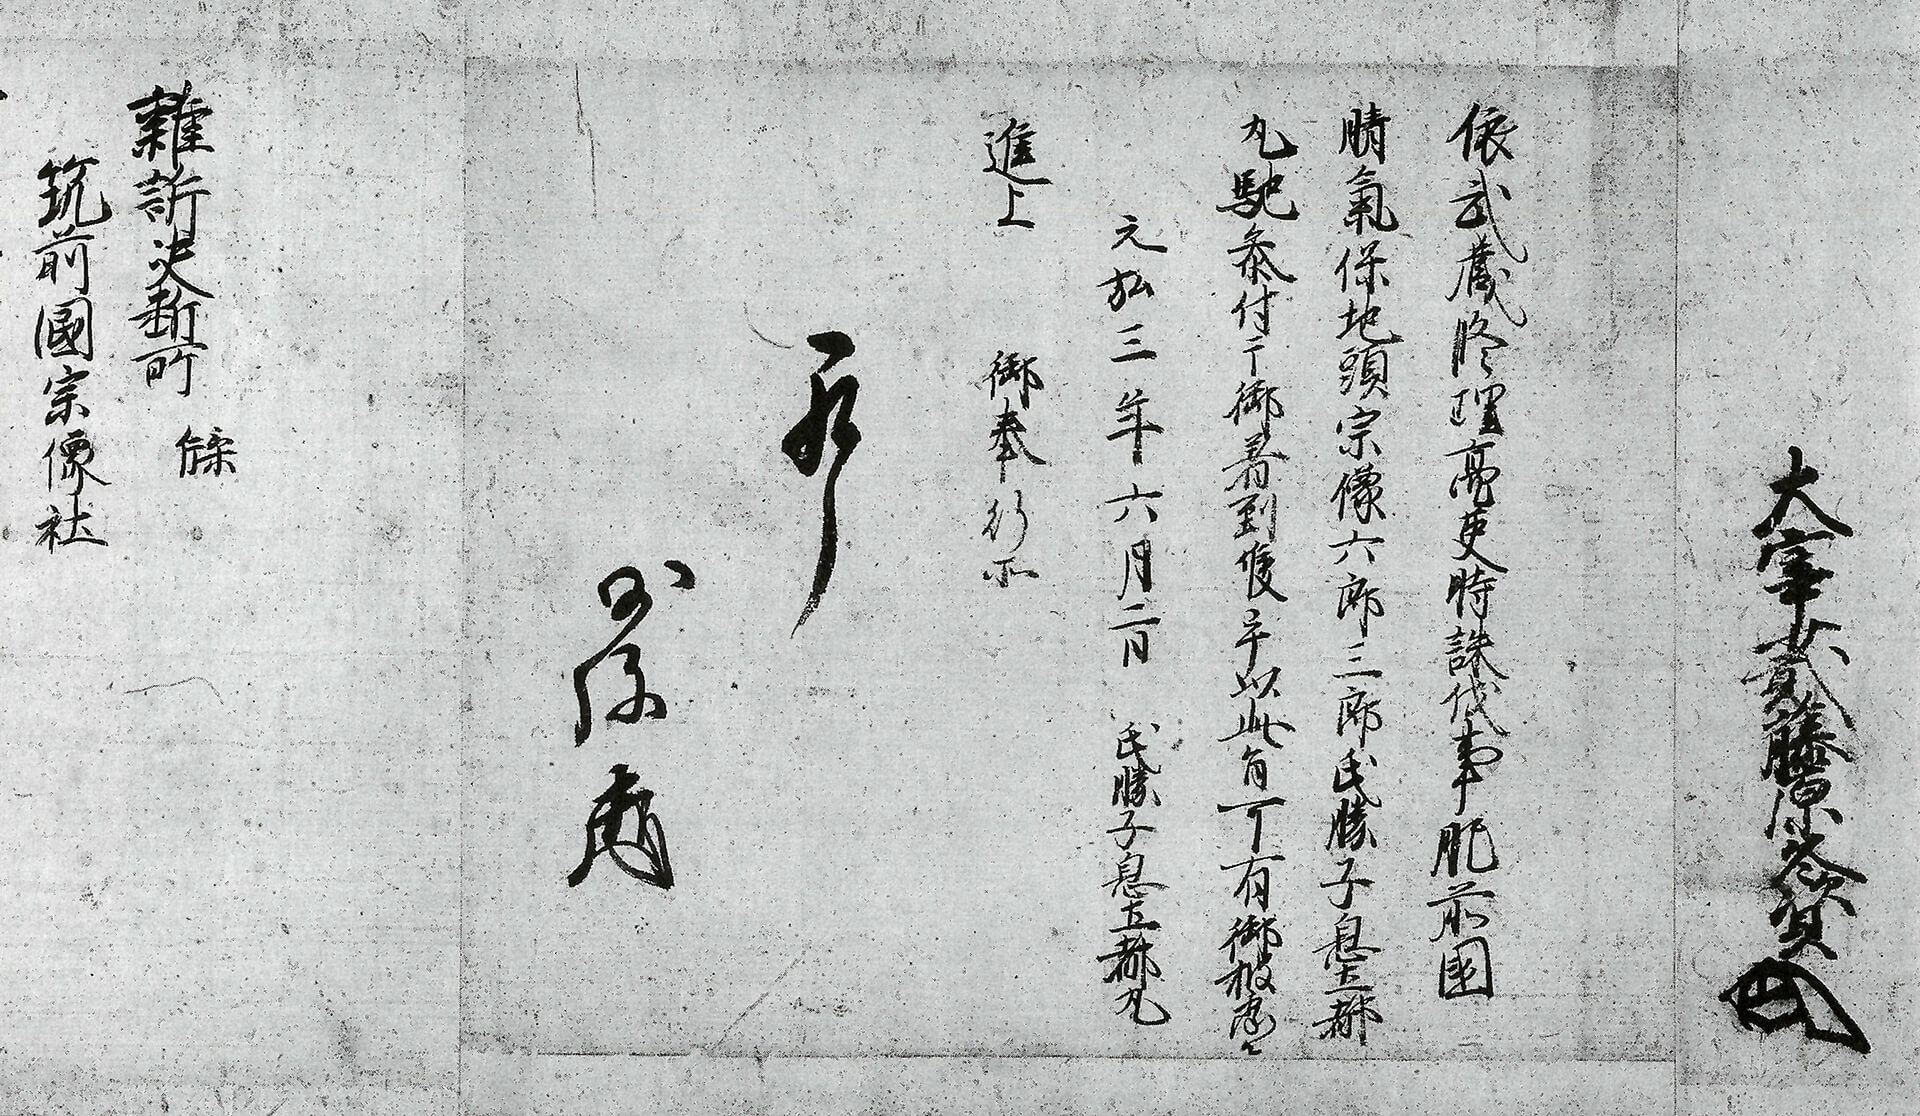 大宰少貳藤原
依武藏修理亮英時誅伐事肥前國
晴氣保地頭宗像六郎三郎氏勝子息五都
丸馳参付于御着到候乎以此旨可有御披露候
元弘三年六月二日 氏勝子息五都丸
進上 御奉行所
承了
雜訴決断所 牒
筑前國宗像社